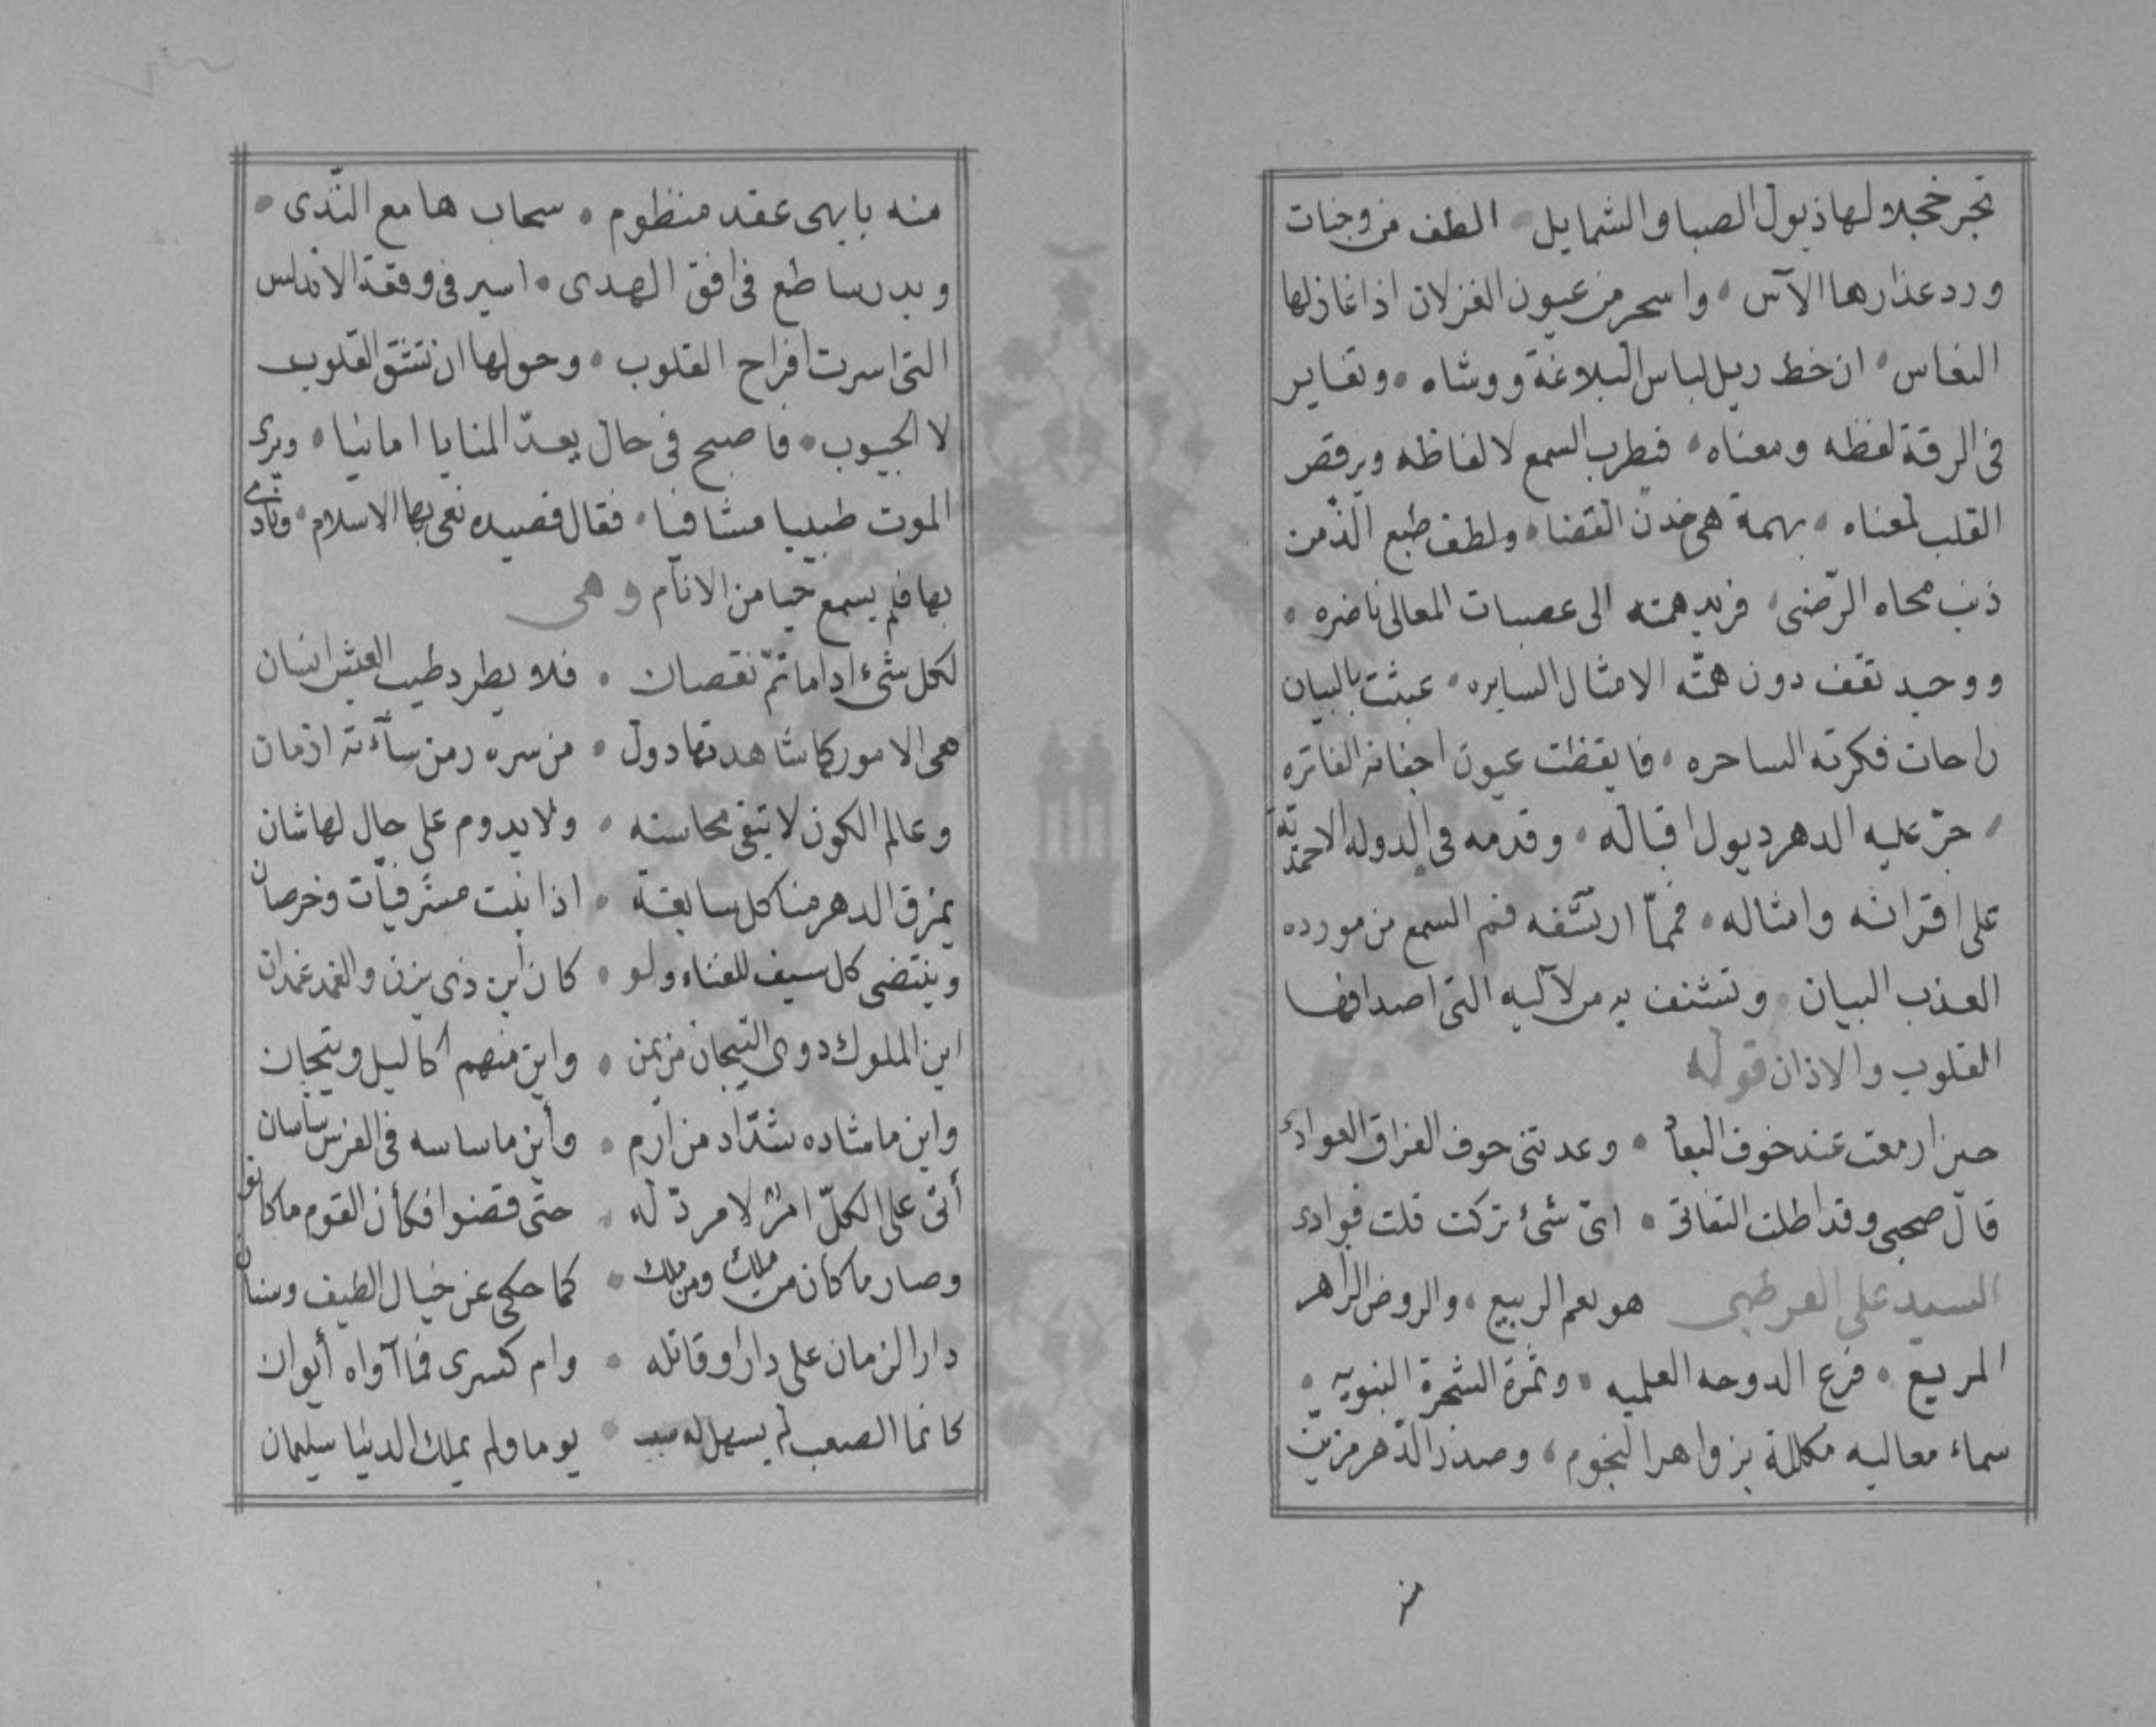 تجر خجلا لها ذيول الصبا والشمايل • الطف من وجنات
ورد عذارها الآس • واسحر من عيون الغزلان اذا غازلها
النعاس • ان خط ريل لباس البلاغة ووشاه • وتغاير
فى الرقة لفظه ومعناه • فيطرب السمع لالفاظه ويرقص
القلب لمعناه • بهمة هى خدن القضا • ولطف طبع الذ من
ذنب محاه الرّضى • فريد همته الى عصبات المعالى ناضره •
ووحيد تقف دون همّته الامثال السايره • عبثت بالبيان
راحات فكرته الساحره • فايقظت عيون اجفانه الفاتره
• جرّ عليه الدهر ديول اقباله • وقدمه فى الدوله الاحمديّة
على اقرانه وامثاله • فممّا ارتشفه فم السمع من مورده
العذب البيان • وتشنف به من لآليه التى اصدافها
القلوب والاذان قوله
حين ازمعت عند خوف البعاد • وعدتنى حوف الفراق العوادى
قال صحبى وقد اطلت التفاتى • اىّ شئ تركت قلت فوادى
السيد على القرطبى هو نعم الربيع • والروض الزاهر
المريع • فرع الدوحه العلميه • وثمرة الشجرة النبويه •
سماء معاليه مكللة بزواهر النجوم • وصدر الدّهر مزيّن
منه بابهى عقد منظوم • سحاب هامع النّدى •
وبدر ساطع فى افق الهدى • اسير فى وقعة الاندلس
التى اسرت افراح القلوب • وحق لها ان تنشق القلوب
لا الجيوب • فاصبح فى حال يعدّ المنايا امانيا • ويرى
الموت طبيبا مشافيا • فقال قصيده نعى بها الاسلام • ونادى
بها فلم يسمع حيا من الانام وهى
لكل شئ اداما تمّ نقصان • فلا يطرد طيب العيش انسان
هى الامور كما شاهدتها دول • من سره زمن ساءته ازمان
وعالم الكون لا تبقى محاسنه • ولا يدوم على حال لها شان
يمزق الدهر منا كل سابغة • اذا نبت مشرفيات وخرصان
وينتضى كل سيف للفناء ولو • كان ابن ذى يزن والغمد غمدان
اين الملوك دوى التيجان من يمن • واين منهم اكاليل وتيجان
واين ما شاده شدّاد من ارم • وأين ما ساسه فى الفرس ساسان
أتى على الكلّ امر لا مردّ له • حتى قضوا فكأن القوم ما كانو
وصار ما كان من ملك ومن ملك • كما حكى عن خيال الطيف وسنان
دار الزمان على دارا وقاتله • وام كسرى فما آواه أيوان
كانما الصعب لم يسهل له سبب • يوما ولم يملك الدنيا سليمان